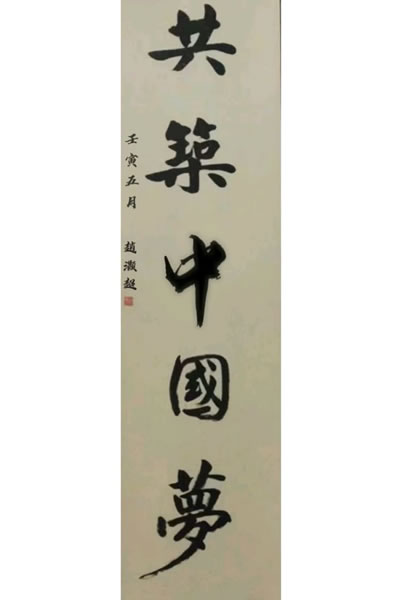 共築中國夢
壬寅五月 趙灝超